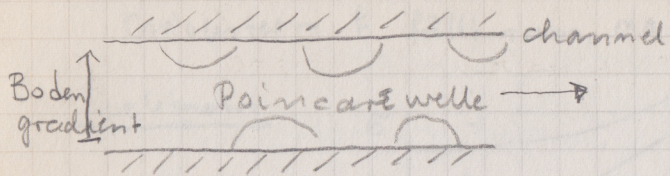 channel
Boden
gradient
Poincaré welle